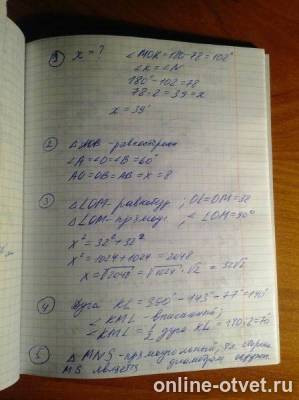 ① x = ?
∠MOK = 180 - 78 = 102°
∠K = ∠N
180° - 102 = 78
78 : 2 = 39 = x
x = 39°
② △AOB - равносторон
∠A = ∠O = ∠B = 60°
AO = OB = AB = x = 8
③ △LOM - равнобедр ; OL = OM = 32
△LOM - прямоуг , ∠LOM = 90°
x² = 32² + 32²
x² = 1024 + 1024 = 2048
x = √2048 = √1024 · √2 = 32√2
④ Дуга KL = 360° - 143° - 77° = 140°
∠KML - вписанный ;
∠KML = ½ дуга KL = 140 : 2 = 70
⑤ △MNS - прямоугольный, т.к. сторона
MS является диаметром окружн.
online-otvet.ru